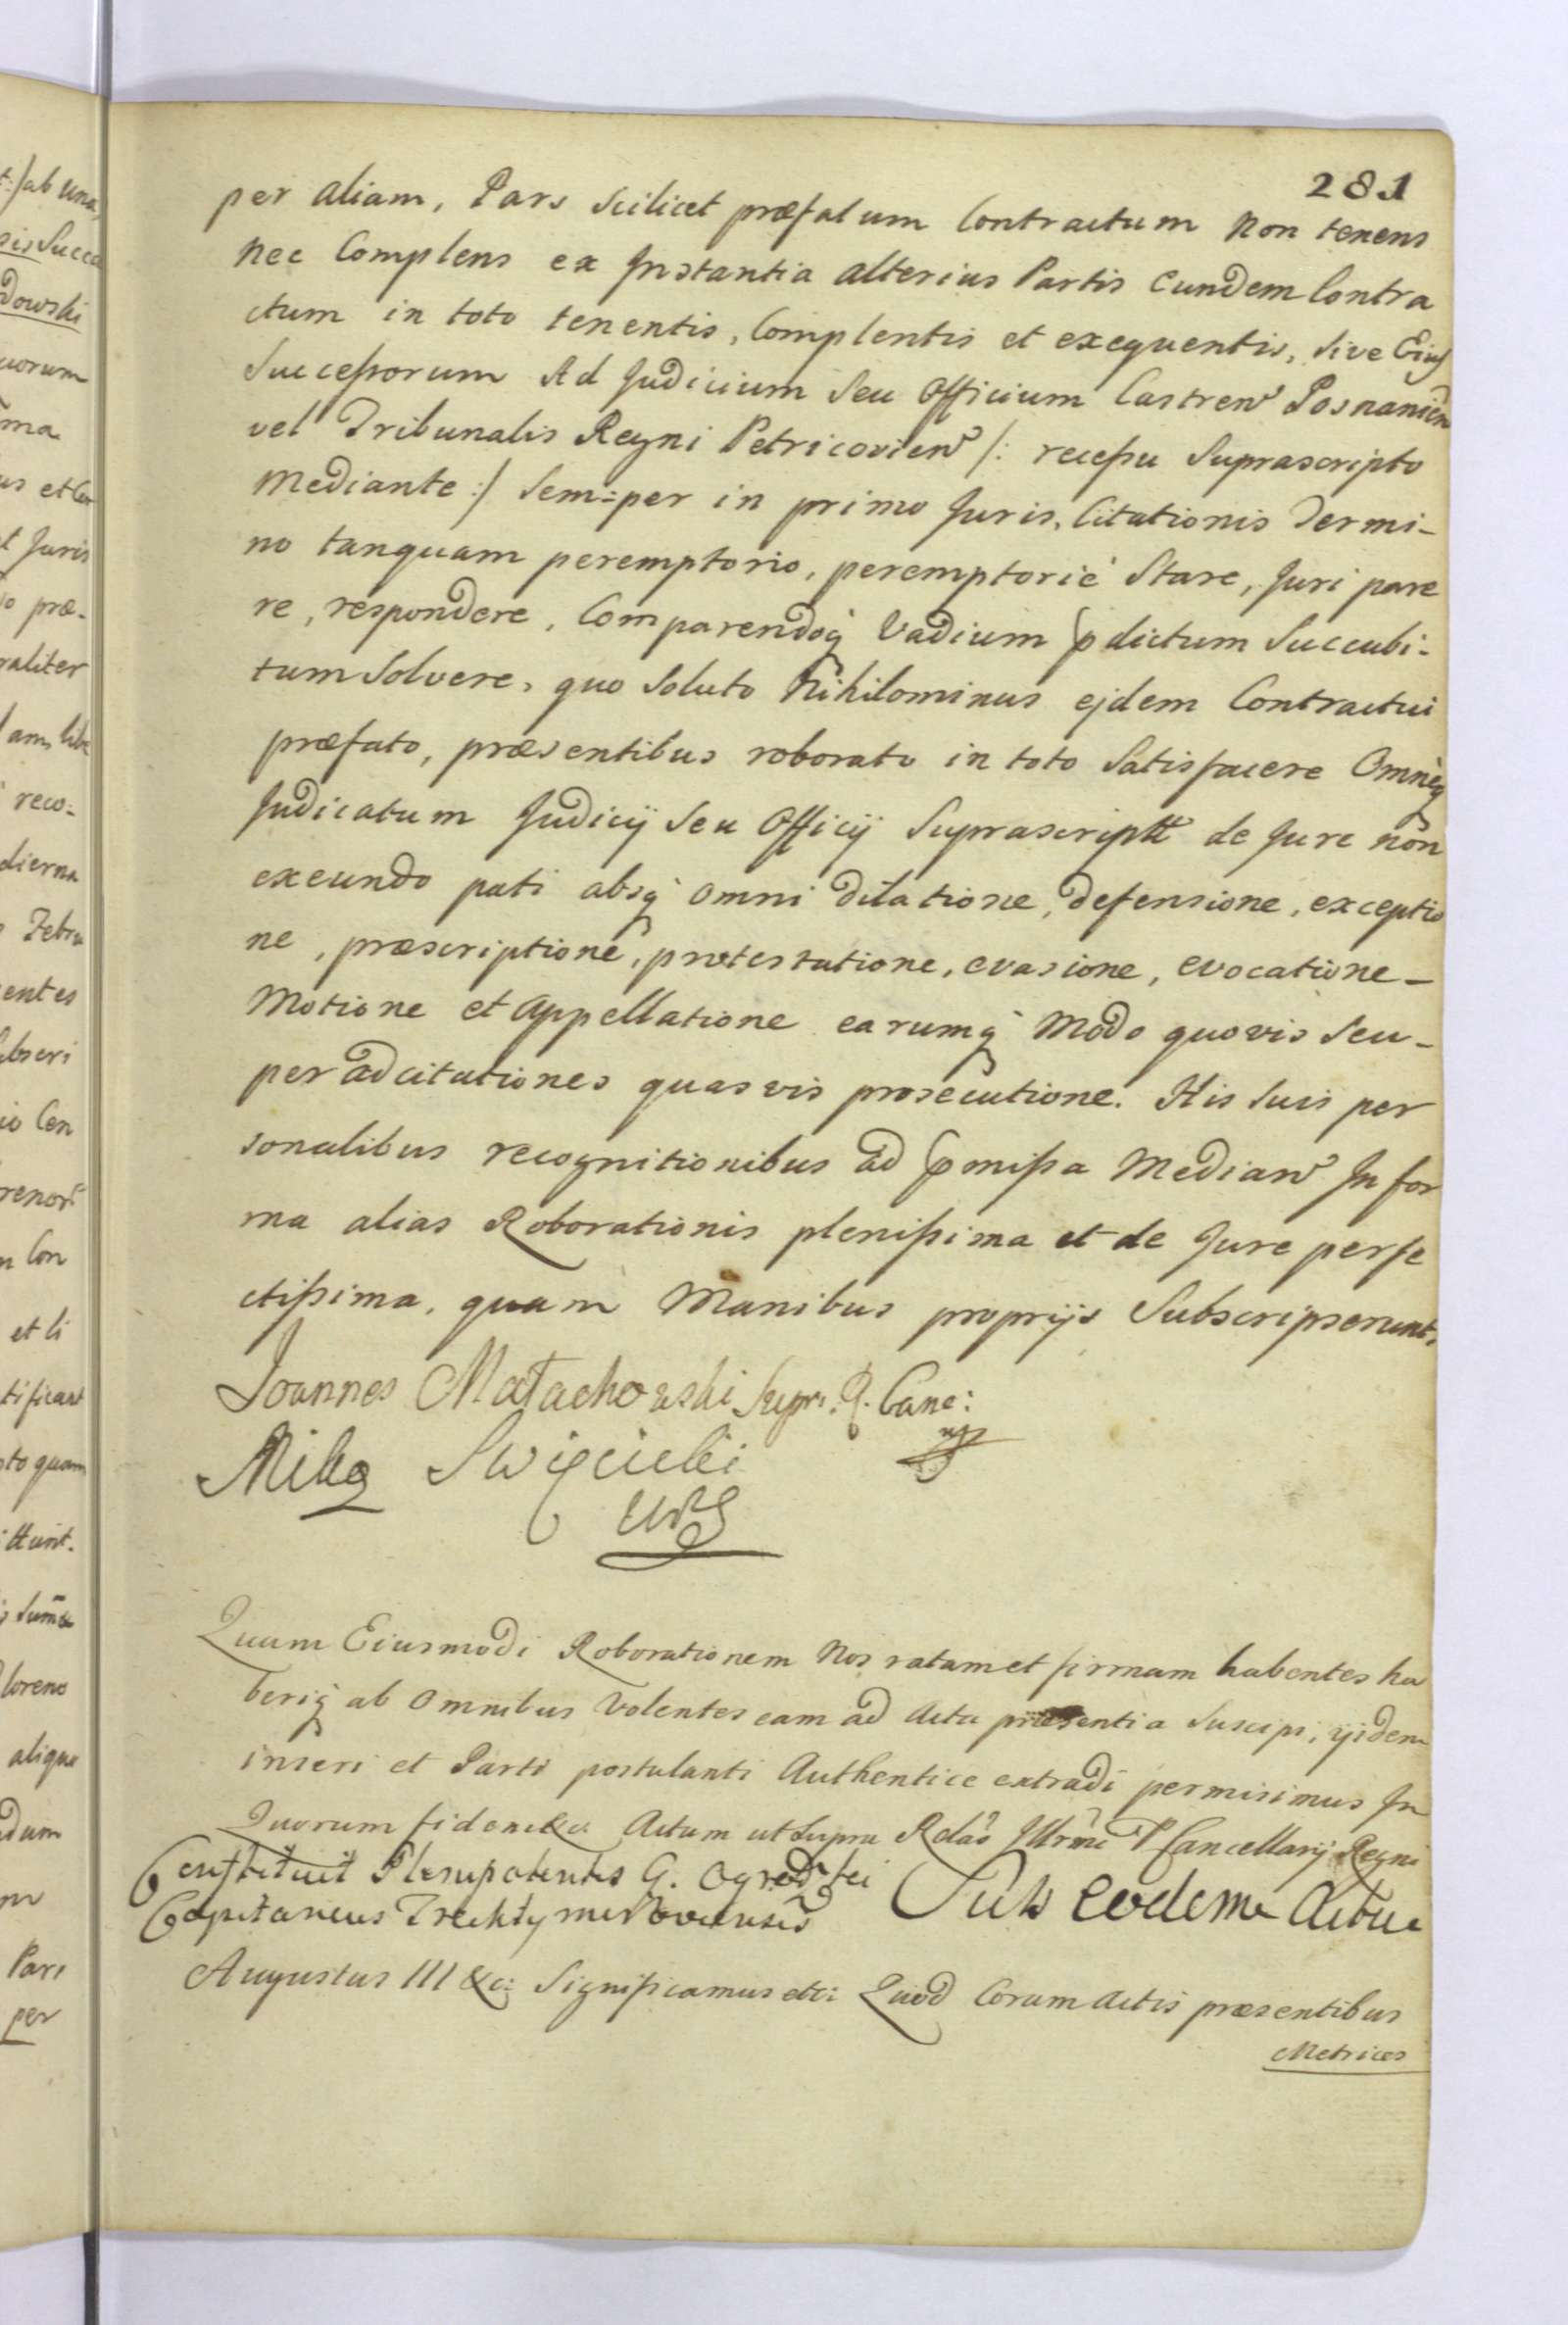 281
per aliam, Pars scilicet præfatum Contractum non tenens
nec Complens ex Instantia alterius Partis eundem Contra
ctum in toto tenentis, Complentis et exequentis, sive Eius
Successorum Ad Judicium seu Officium Castren Posnanien
vel Tribunalis Regni Petricovien /: recessu suprascripto
mediante :/ sem=per in primo Juris, Citationis Termi-
no tanquam peremptorio, peremptorié Stare, Juri pare
re, respondere, Comparendoq Vadium pdictum succubi-
tum solvere, quo soluto Nihilominus ejdem Contractui
præfato, præsentibus roborato in toto satisfacere Omneq
Judicatum Judicij seu Officij Suprascriptt de Jure non
exeundo pati absq omni dilatione, defensione, exceptio
ne, præscriptione, protestatione, evasione, evocatione-
Motione et appellatione earumq Modo quovis seu-
per adcitationes quasvis prosecutione. His suis per
sonalibus recognitionibus ad pmissa Median In for
ma alias Roborationis plenissima et de Jure perfe
ctissima, quam Manibus proprijs Subscripserunt.
Joannes Małachowski Supr. R. Canc:
mp
Mikq Swięcicki
Quam Eiusmodi Roborationem Nos ratam et firmam habentes ha
beriq ab Omnibus Volentes eam ad Acta præsentia Suscipi, ijsdem
inseri et Parti postulanti Authentice extradi permisimus In
Quorum fidem &c. Actum ut supra Rel͠ao Illrmi P Cancellarij Regni
Constituit Plenipotentes G.
Capitaneus
Sub eodem Actu
Augustus III &c: Significamus etc: Quod Coram Actis præsentibus
Metrices